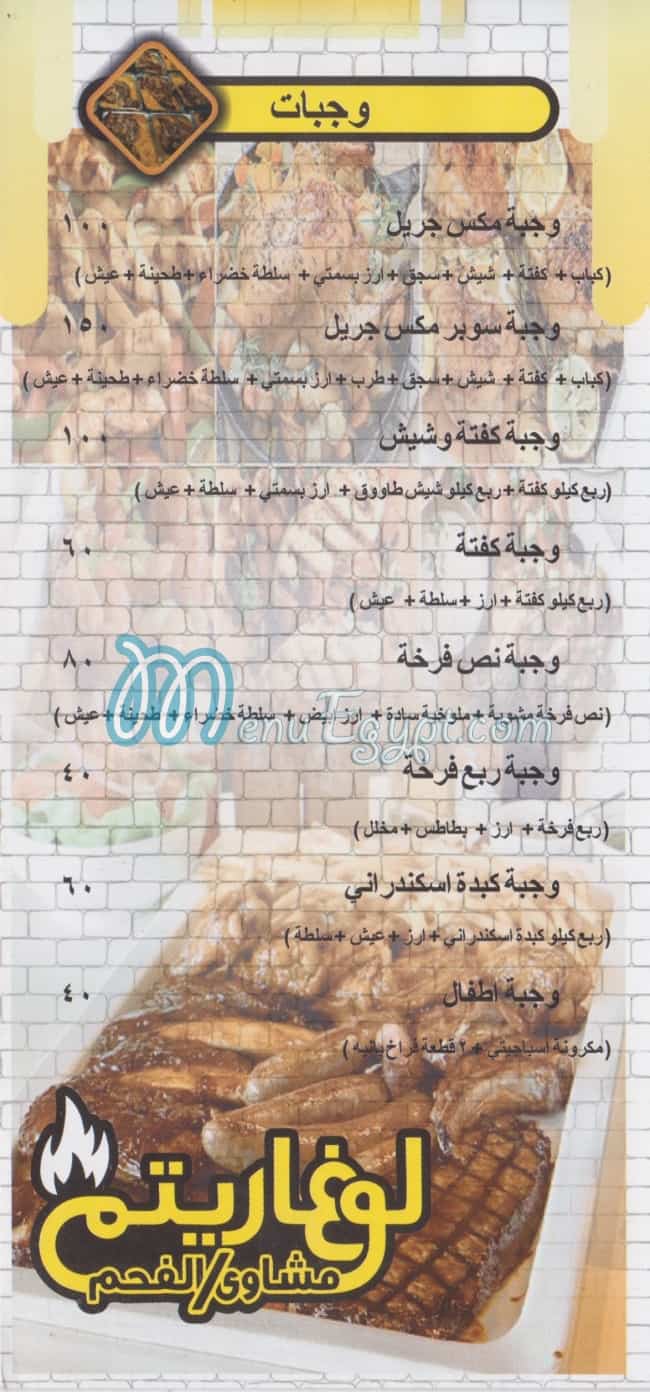 وجبات
وجبة مكس جريل ١٠٠
(كباب + كفتة + شيش + سجق + ارز بسمتي + سلطة خضراء + طحينة + عيش)
وجبة سوبر مكس جريل ١٥٠
(كباب + كفتة + شيش + سجق + طرب + ارز بسمتي + سلطة خضراء + طحينة + عيش)
وجبة كفتة وشيش ١٠٠
(ربع كيلو كفتة + ربع كيلو شيش طاووق + ارز بسمتي + سلطة + عيش)
وجبة كفتة ٦٠
(ربع كيلو كفتة + ارز + سلطة + عيش)
وجبة نص فرخة ٨٠
(نص فرخة مشوية + ملوخية سادة + ارز ابيض + سلطة خضراء + طحينة + عيش)
MenuEgypt.com
وجبة ربع فرخة ٤٠
(ربع فرخة + ارز + بطاطس + مخلل)
وجبة كبدة اسكندراني ٦٠
(ربع كيلو كبدة اسكندراني + ارز + عيش + سلطة)
وجبة اطفال ٤٠
(مكرونة اسباجيتي + ٢ قطعة فراخ بانيه)
لوغاريتم
مشاوى/الفحم